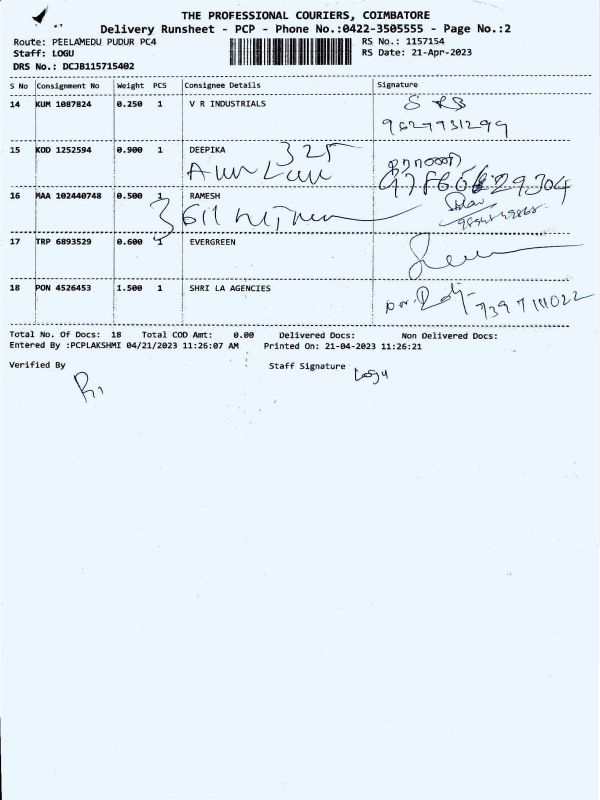 THE PROFESSIONAL COURIERS, COIMBATORE
Delivery Runsheet - PCP - Phone No.:0422-3505555 - Page No.:2
Route: PEELAMEDU PUDUR PC4 RS No.: 1157154
Staff: LOGU RS Date: 21-Apr-2023
DRS No.: DCJB115715402
S No Consignment No Weight PCS Consignee Details Signature
14 KUM 1087824 0.250 1 V R INDUSTRIALS
9627931299
15 KOD 1252594 0.900 1 DEEPIKA
325
16 MAA 102440748 0.500 1 RAMESH
17 TRP 6893529 0.600 1 EVERGREEN
18 PON 4526453 1.500 1 SHRI LA AGENCIES
Total No. Of Docs: 18 Total COD Amt: 0.00 Delivered Docs: Non Delivered Docs:
Entered By :PCPLAKSHMI 04/21/2023 11:26:07 AM Printed On: 21-04-2023 11:26:21
Verified By Staff Signature Logu